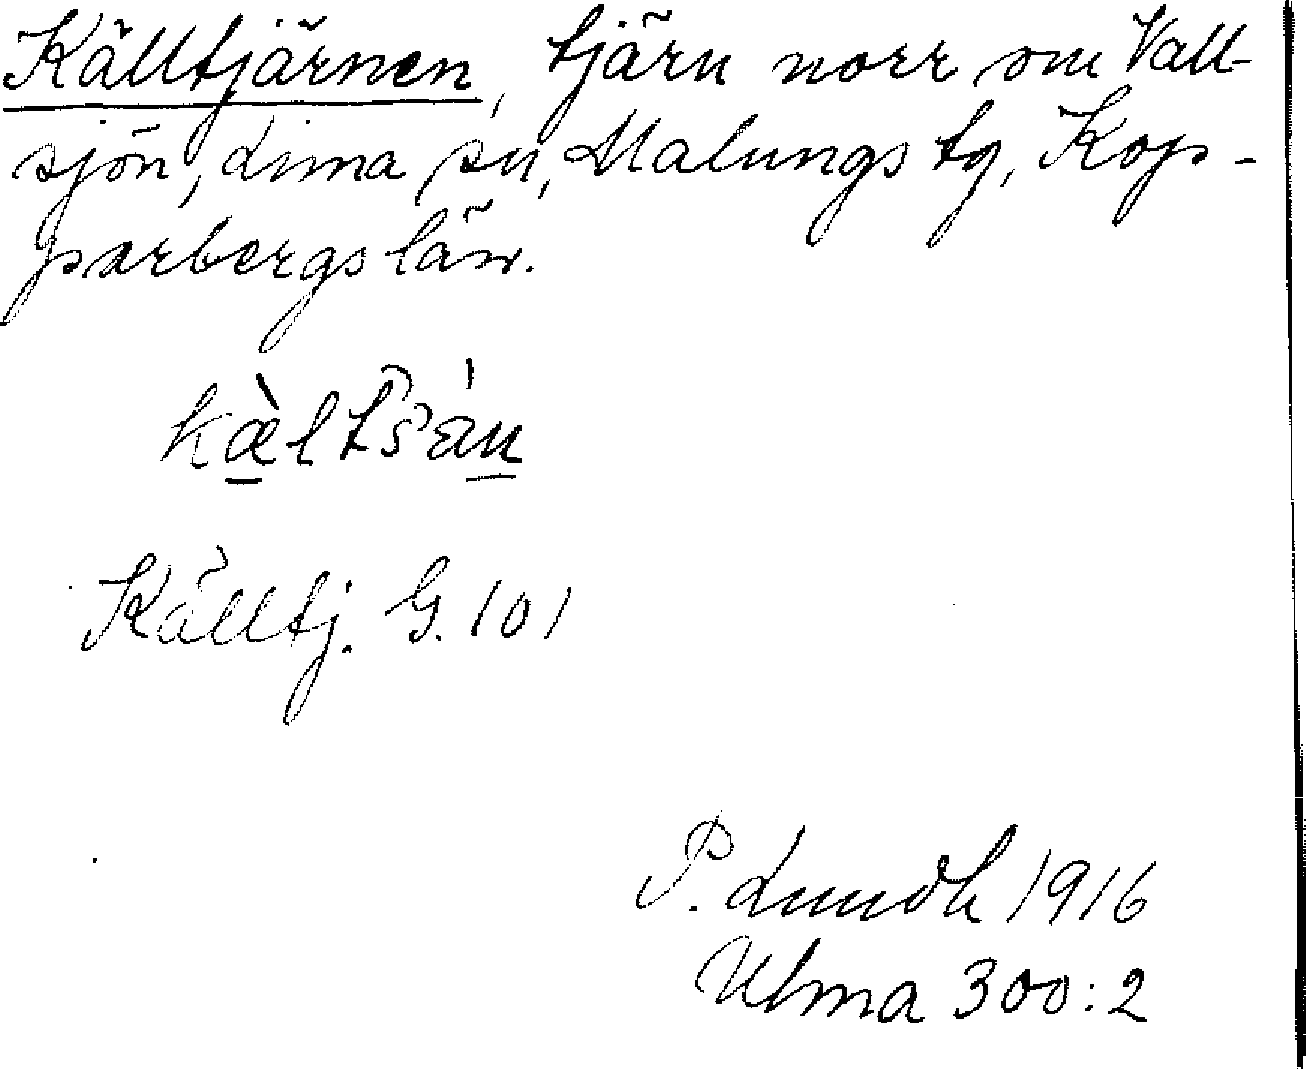 Källtjärnen, tjärn norr om Vall-
sjön, Lima sn, Malungs tg, Kop-
parbergs län.
kæ̀ltšán
Källtj. G. 101
P. Lundh 1916
Ulma 300:2